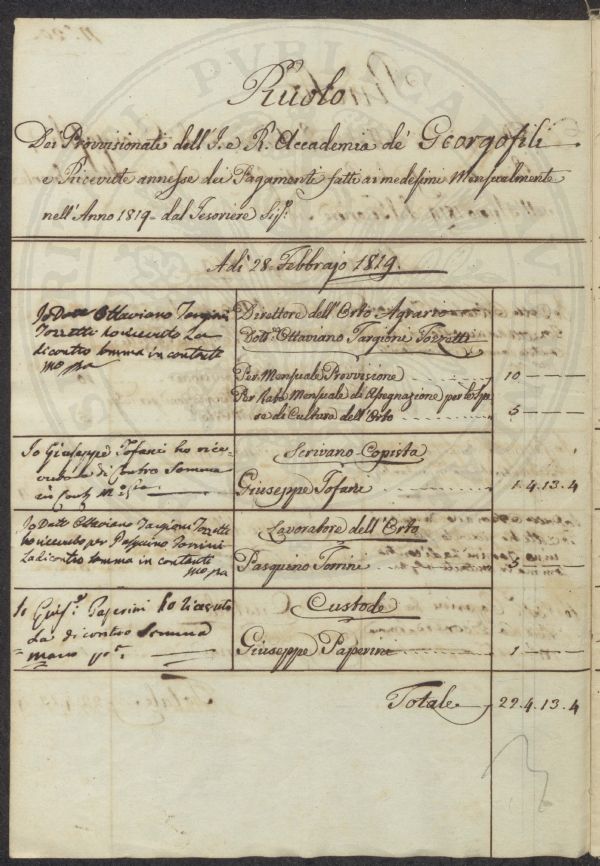 Ruolo
Dei Provisionati dell'I. e R. Accademia de' Georgofili
e Ricevute annesse dei Pagamenti fatti ai medesimi Mensualmente
nell'Anno 1819 - dal Tesoriere Sig.r
A dì 28. Febbrajo 1819.
Io Dott Ottaviano Targioni
Tozzetti ho ricevuto La
di contro somma in contanti
mo pa
Direttore dell'Orto Agrario
Dott. Ottaviano Targioni Tozzetti
Per Mensuale Provvisione 10 -
Per Rata Mensuale di Assegnazione per le Spe
se di Cultura dell'Orto 5 -
Io Giuseppe Tofani ho rice-
vuto la di Contro Somma
in Cont.i M. pia
Scrivano Copista
Giuseppe Tofani 1. 4. 13. 4
Io Dott Ottaviano Targioni Tozzetti
ho ricevuto per Pasquino Torrini
La di contro somma in contanti
mo pa
Lavoratore dell'Orto
Pasquino Torrini 5
Io Gius.e Paperini ho ricevuto
La di contro Somma
mano pr.a
Custode
Giuseppe Paperini 1 -
Totale 22. 4. 13. 4